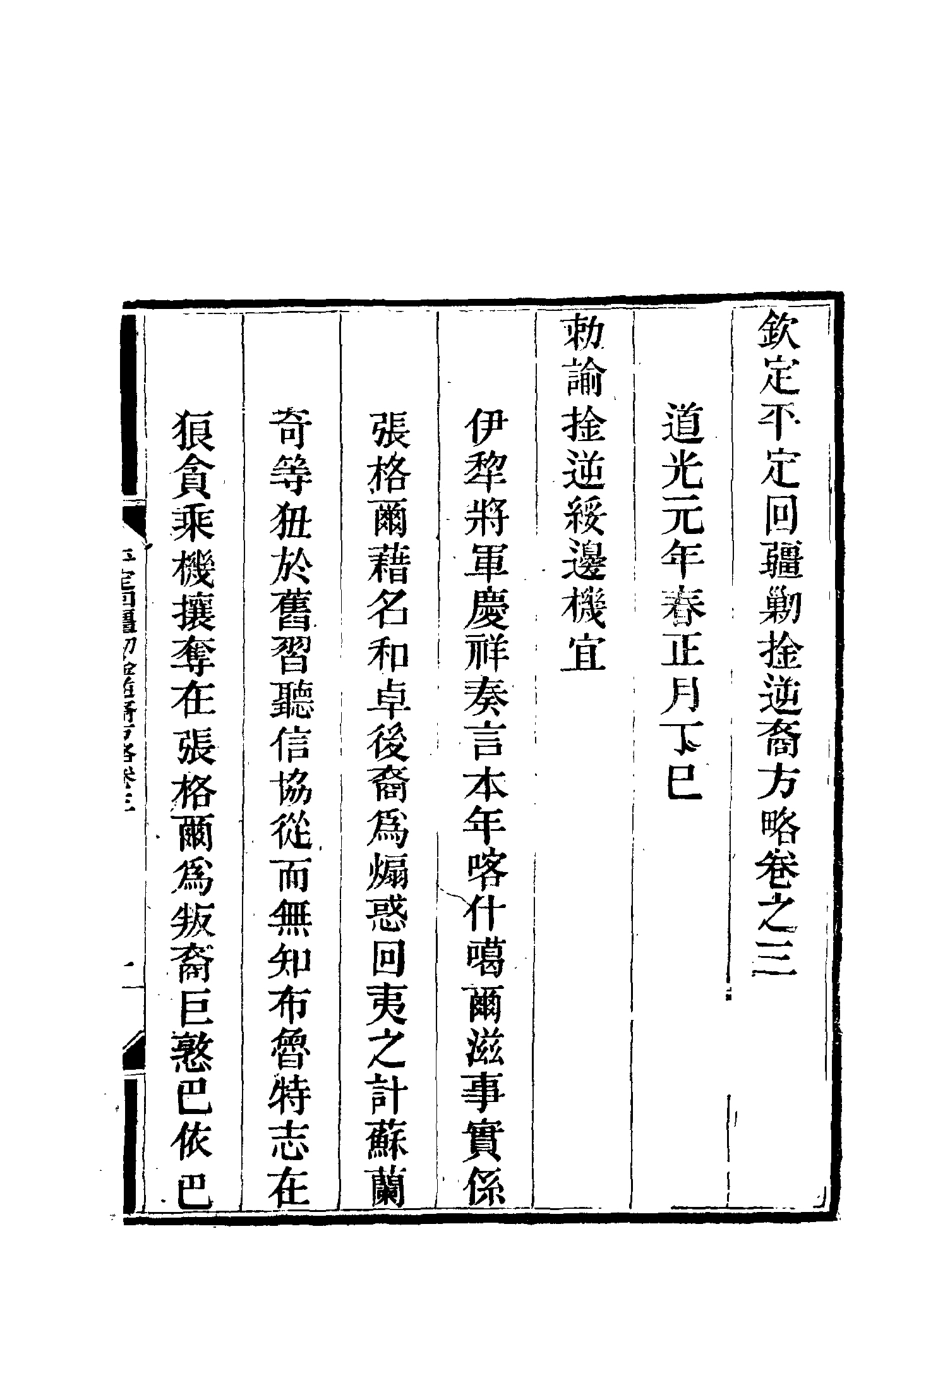 欽定平定回疆勦捦逆裔方略卷之三
道光元年春正月丁巳
勅諭捦逆綏邊機宜
伊犂將軍慶祥奏言本年喀什噶爾滋事實係
張格爾藉名和卓後裔爲煽惑回夷之計蘇蘭
奇等狃於舊習聽信協從而無知布魯特志在
狼貪乘機攘奪在張格爾爲叛裔巨憝巴依巴
平定回疆勦捦逆裔方略卷三
一